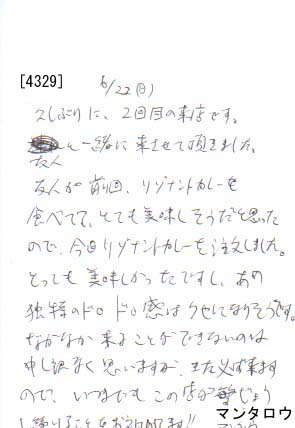 [4329] 6/22(日)
久しぶりに、2回目の来店です。
友人と一緒に来させて頂きました。
友人が前回、リゾナントカレーを
食べてて、とても美味しそうだと思った
ので、今回リゾナントカレーを注文しました。
とっても美味しかったですし、あの
独特のドロドロ感はクセになりそうです。
なかなか来ることができないのは
申し訳なく思いますが、また必ず来ます
ので、いつまでもこの店が繁じょう
マンタロウ